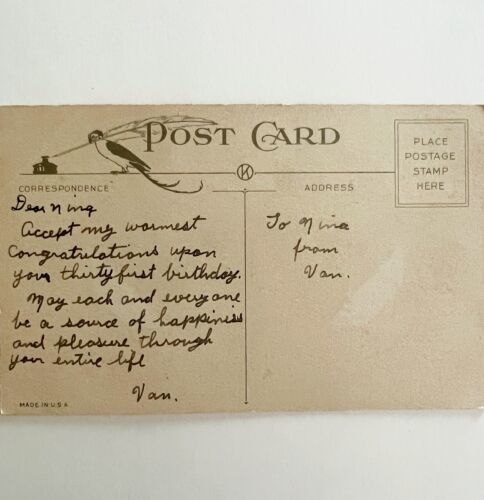 POST CARD
PLACE
POSTAGE
STAMP
HERE
K
CORRESPONDENCE
ADDRESS
Dear Nina
Accept my warmest
Congratulations upon
your thirty first birthday.
May each and every one
be a source of happiness
and pleasure through
your entire life
Van.
To Nina
from
Van.
MADE IN U.S.A.